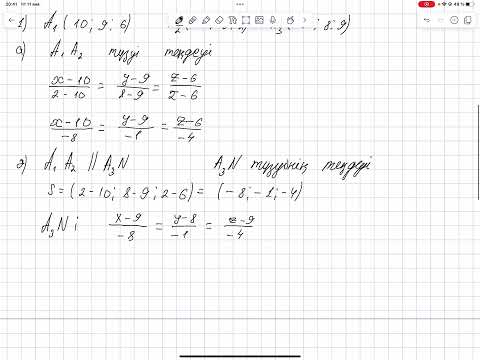 20:41 Пт 11 янв. 49 %
1) A₁ (10; 9; 6) A₃ ( ; 8; 9)
а) A₁ A₂ түзүү теңдеуі
x-10/2-10 = y-9/8-9 = z-6/2-6
x-10/-8 = y-9/-1 = z-6/-4
г) A₁ A₂ || A₃N A₃N түзудің теңдеуі
S = (2-10; 8-9; 2-6) = (-8; -1; -4)
A₃N: x-9/-8 = y-8/-1 = z-9/-4